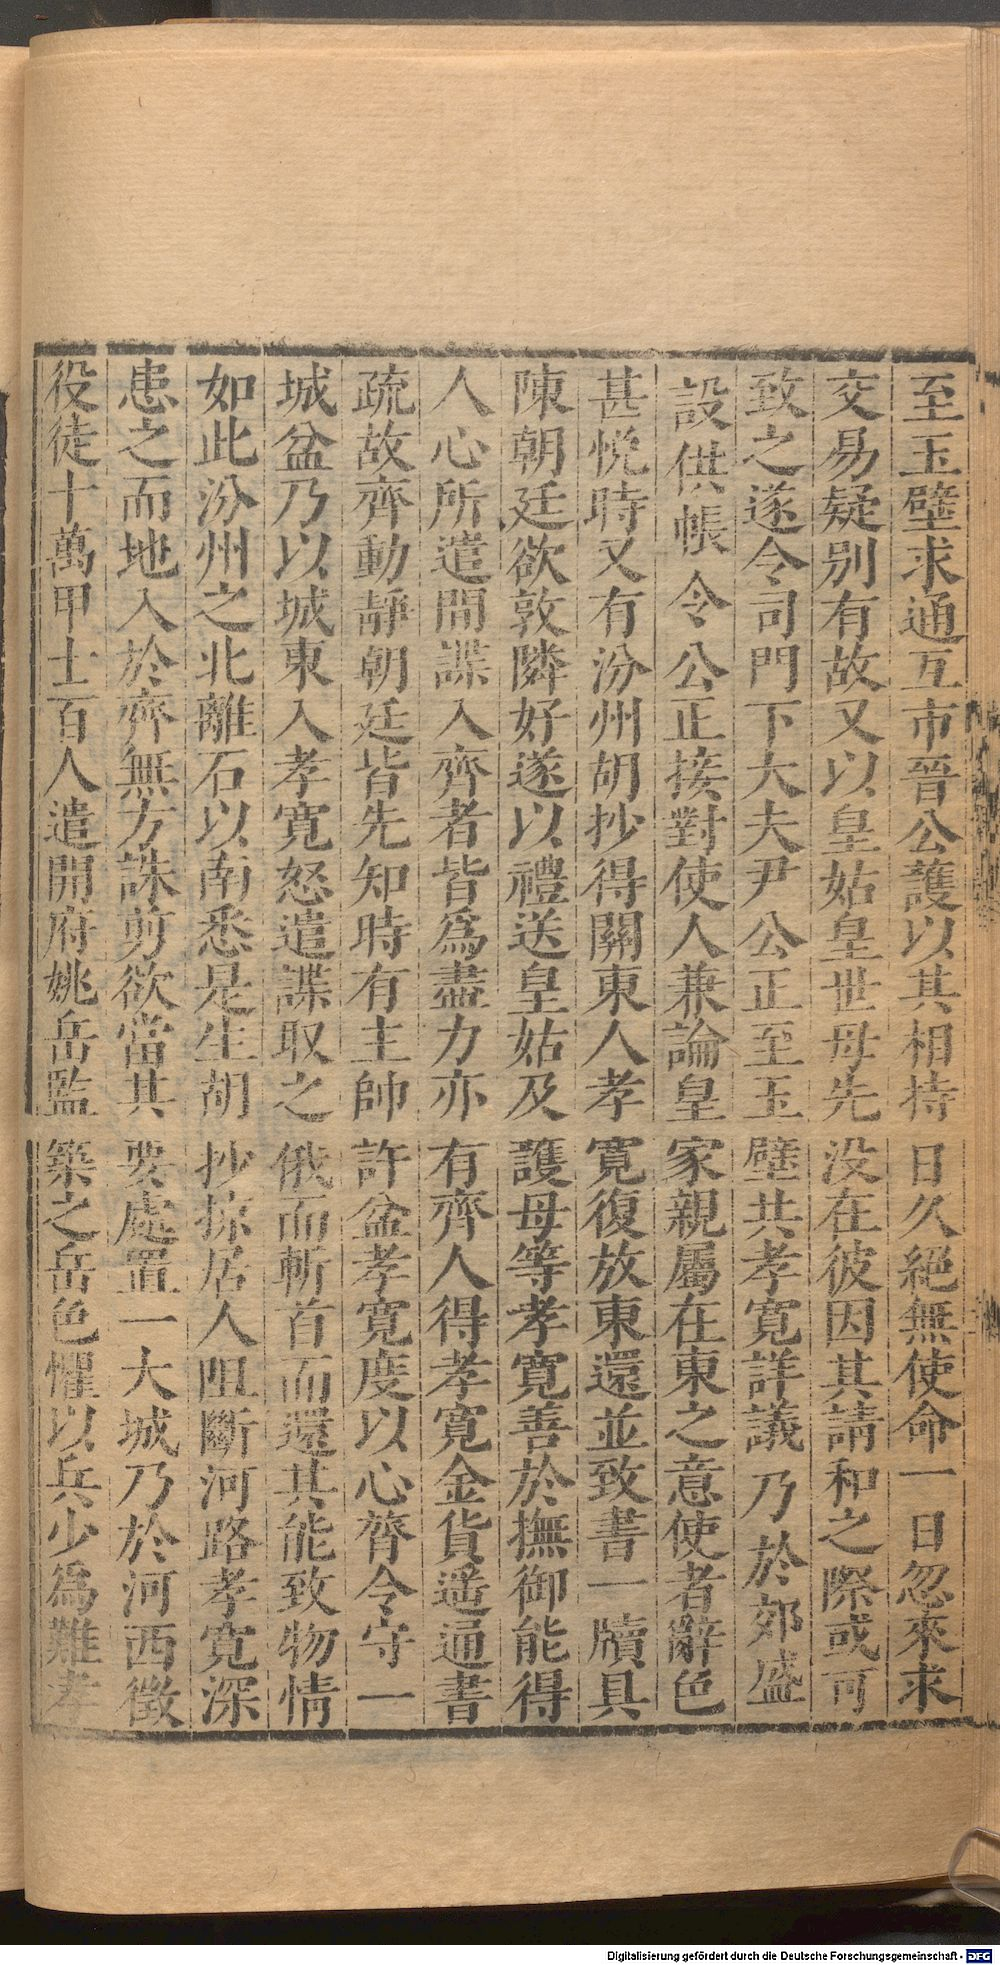 至玉壁求通互市晉公護以其相持日久絕無使命一日忽來求
交易疑别有故又以皇姑皇世母先没在彼因其請和之際或可
致之遂令司門下大夫尹公正至玉壁共孝寛詳議乃於郊盛
設供帳令公正接對使人兼論皇家親屬在東之意使者辭色
甚悦時又有汾州胡抄得關東人孝寛復放東還並致書一牘具
陳朝廷欲敦隣好遂以禮送皇姑及護母等孝寛善於撫御能得
人心所遣間諜入齊者皆爲盡力亦有齊人得孝寛金貨遥通書
疏故齊動靜朝廷皆先知時有主帥許盆孝寛度以心膂令守一
城盆乃以城東入孝寛怒遣諜取之俄而斬首而還其能致物情
如此汾州之北離石以南悉是生胡抄掠居人阻斷河路孝寛深
患之而地入於齊無方誅剪欲當其要處置一大城乃於河西徵
役徒十萬甲士百人遣開府姚岳監築之岳色懼以兵少爲難孝
Digitalisierung gefördert durch die Deutsche Forschungsgemeinschaft - DFG